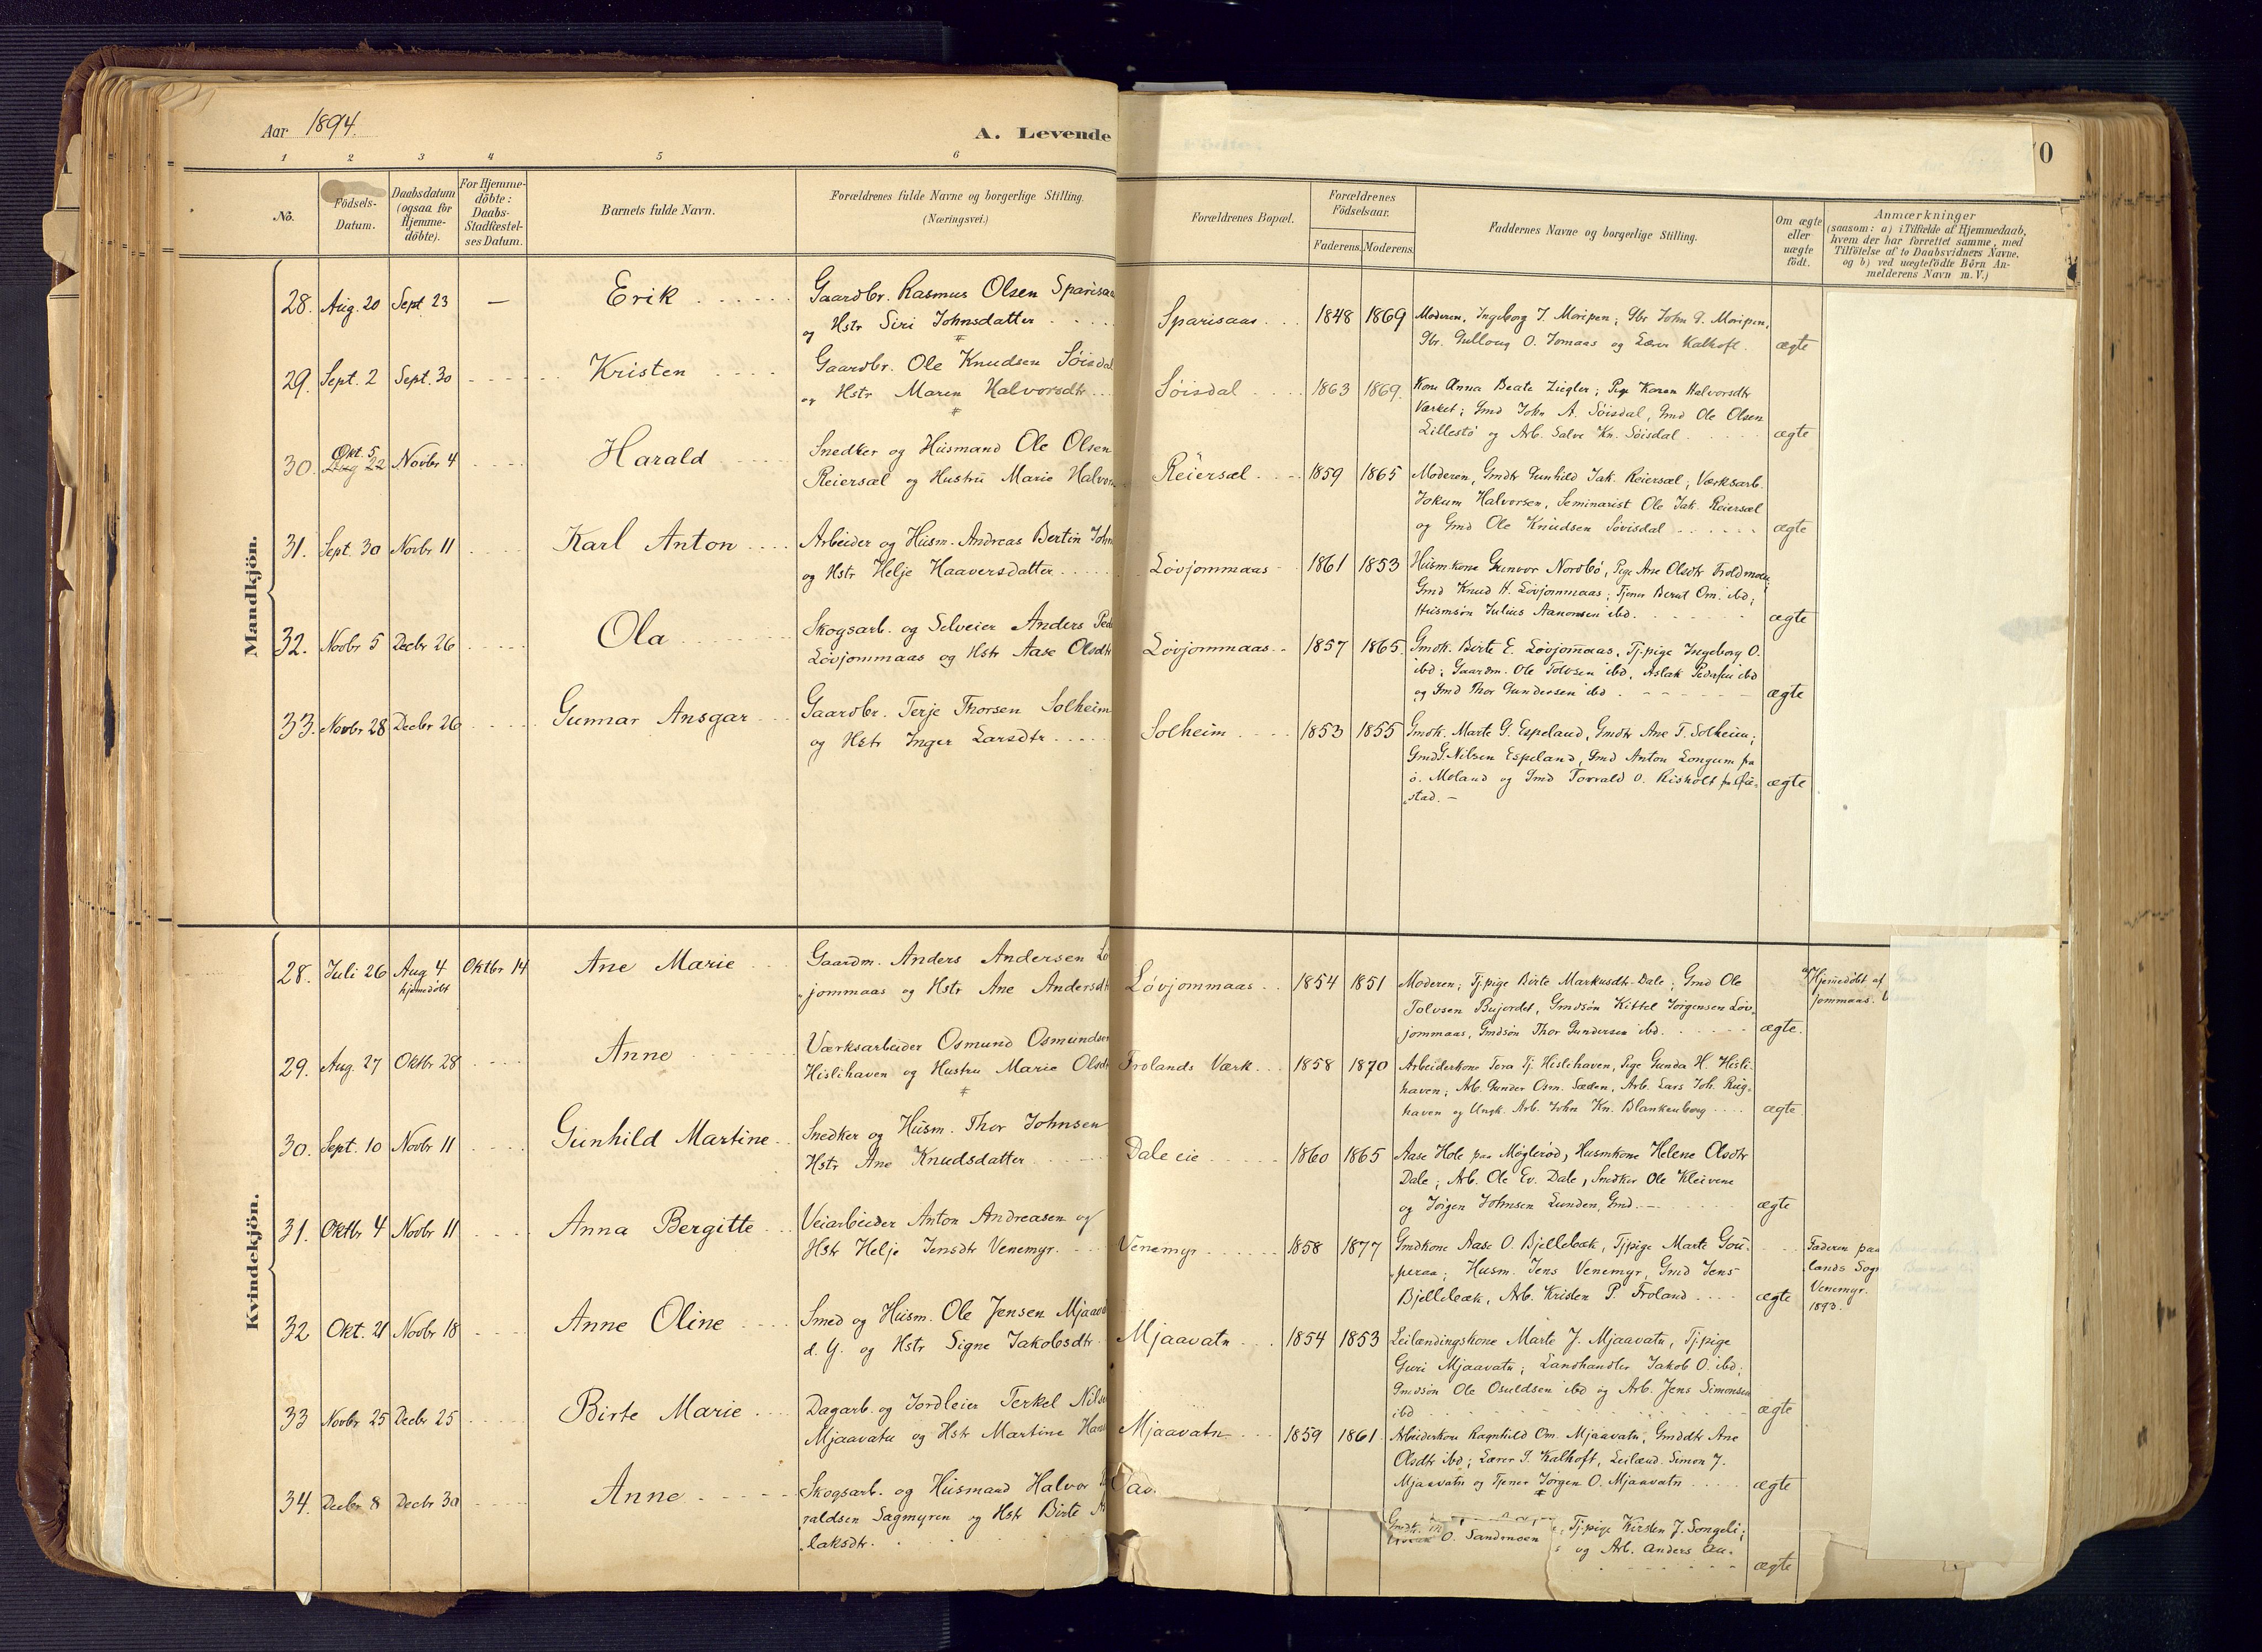 Aar 1894.
A. Levende
70
1 2 3 4 5 6
No.
Födsels-
Datum.
Daabsdatum
(ogsaa for
Hjemme-
döbte).
For Hjemme-
döbte:
Daabs-
Stadfæstel-
ses Datum.
Barnets fulde Navn.
Forældrenes fulde Navne og borgerlige Stilling.
(Næringsvei.)
Forældrenes Bopæl.
Forældrenes
Födselsaar.
Faderens. Moderens.
Faddernes Navne og borgerlige Stilling.
Om ægte
eller
uægte
födt.
Anmærkninger
(saasom: a) i Tilfælde af Hjemmedaab,
hvem der har forrettet samme, med
Tilföielse af to Daabsvidners Navne,
og b) ved uægtefödte Börn An-
melderens Navn m. V.)
Mandkjön.
28. Aug. 20 Sept. 23 — Erik Gaardbr. Rasmus Olsen Sparisaa
og Hstr Siri Johnsdatter
Sparisaas 1848 1869 Moderen, Ingeborg J. Moripen; Gbr John G. Moripen,
Gbr. Gullovg O. Jomaas og Lærer Kalhoft. ægte
29. Sept. 2 Sept. 30 Kristen Gaardbr. Ole Knudsen Söisdal
og Hstr Maren Halvorsdtr
Söisdal 1863 1869. Kone Anna Beate Ziegler; Pige Karen Halvorsdtr
Værket; Gmd John A. Söisdal, Gmd Ole Olsen
Lillestö og Arb. Salve Kn. Söisdal ægte
30. Okt. 5 Aug 22 Novbr 4 Harald Snedker og Husmand Ole Olsen
Reiersæl og Hustru Marie Halvor
Reiersæl 1859 1865 Moderen, Gmdtr Gunhild Jak. Reiersæl; Værksarb.
Jokum Halvorsen, Seminarist Ole Jak. Reiersæl
og Gmd Ole Knudsen Sövisdal ægte
31. Sept. 30 Novbr 11 Karl Anton Arbeider og Husm. Andreas Bertin John
og Hstr Helje Haaversdatter
Lövjommaas 1861 1853 Husmkone Gunvor Nordbö, Pige Ane Olsdtr Troldmoen;
Gmd Knud H. Lövjommaas; Tjener Bernt Om. ibd;
Husmsön Julius Aanonsen ibd. ægte
32. Novbr 5 Decbr 26 Ola Skogsarb. og Selveier Anders Ped
Lövjommaas og Hstr Aase Olsdtr
Lövjommaas 1857 1865. Gmdk. Birte E. Lövjommaas, Tj.pige Ingeborg O.
ibd; Gaardm. Ole Tolvsen ibd, Aslak Pedersen ibd
og Gmd Thor Gundersen ibd ægte
33. Novbr 28 Decbr 26 Gunnar Ansgar Gaardbr. Terje Thorsen Solheim
og Hstr Inger Larsdtr
Solheim 1853 1855 Gmdk. Marte G. Espeland, Gmdtr Ane T. Solheim;
Gmd G. Nilsen Espeland, Gmd Anton Longum fra
ö. Moland og Gmd Torvald O. Risholt fra Öie-
stad. ægte
Kvindekjön.
28. Juli 26 Aug 4 Oktbr 14 Ane Marie Gaardm. Anders Andersen Lö
hjemedöbt
jommaas og Hstr Ane Andersdt
Lövjommaas 1854 1851 Moderen; Tj.pige Birte Markusdt. Dale; Gmd Ole
Tolvsen Bujordet, Gmdsön Kittel Jörgensen Löv-
jommaas, Gmdsön Thor Gundersen ibd. ægte.
Hjemedöbt af
jommaas.
29. Aug. 27 Oktbr 28 Anne Værksarbeider Osmund Osmundsen
Hislihaven og Hustru Marie Olsdt
Frolands Værk 1858 1870 Arbeiderkone Tora Tj. Hislihaven, Pige Gunda H. Hisli-
haven; Arb. Gunder Osm. Sæden, Arb. Lars Joh. Rug-
haven og Ungk. Arb. John Kn. Blankenborg ægte
30. Sept. 10 Novbr 11 Gunhild Martine Snedker og Husm. Thor Johnsen
Hstr Ane Knudsdatter
Dale eie 1860 1865 Aase Hole paa Möglerød, Husmkone Helene Olsdtr
Dale; Arb. Ole Ev. Dale, Snedker Ole Kleivene
og Jörgen Johnsen Lunden, Gmd. ægte
31. Oktbr 4 Novbr 11 Anna Bergitte Veiarbeider Anton Andreasen og
Hstr Helje Jensdtr Venemyr.
Venemyr 1858 1877 Gmdkone Aase O. Bjellebæk, Tjpige Marte Gou-
peraa; Husm. Jens Venemyr, Gmd Jens
Bjellebæk, Arb. Kristen P. Froland ægte
Faderen paa
lands Sog
Venemyr.
1893.
32 Okt. 21 Novbr 18 Anne Oline Smed og Husm. Ole Jensen Mjaavat
d. y. og Hstr Signe Jakobsdtr
Mjaavatn 1854 1853 Leilændingskone Marte J. Mjaavatn, Tj.pige
Guri Mjaavatn; Landhandler Jakob O. ibd;
Gmdsön Ole Osuldsen ibd og Arb. Jens Simonsen
ibd ægte
33 Novbr 25 Decbr 25 Birte Marie Dagarb. og Jordleier Terkel Nilse
Mjaavatn og Hstr Martine Ha
Mjaavatn 1859 1861 Arbeiderkone Ragnhild Om. Mjaavatn, Gmddtr Ane
Olsdtr ibd; Lærer S. Kalhoft, Leilænd. Simon J.
Mjaavatn og Tjener Jörgen O. Mjaavatn ægte
34. Decbr 8 Decbr 30 Anne Skogsarb. og Husmand Halvor
raldsen Sagmyren og Hstr Birte A
laksdtr.
O. Sandmoen Tj.pige Kirsten J. Songeli;
og Arb. Anders Au-
ægte